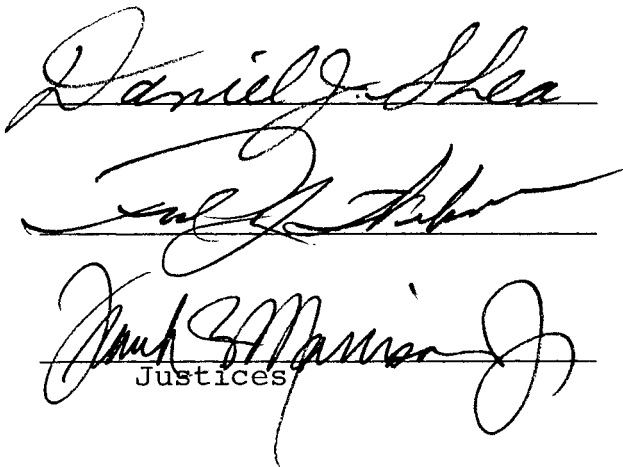 Daniel J. Shea
Frank B Morrison Jr
Justices